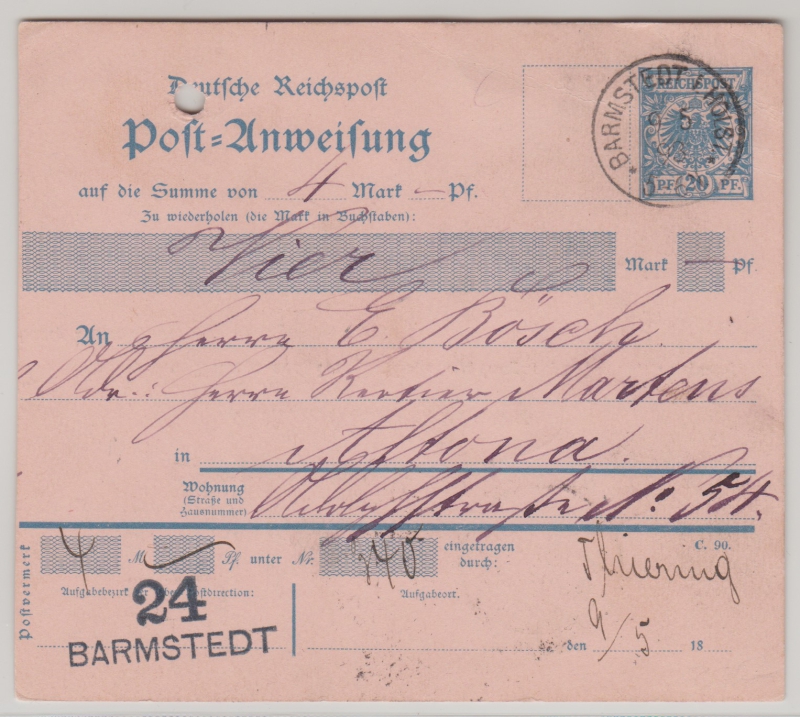 Deutsche Reichspost
Post-Anweisung
auf die Summe von 4 Mark — Pf.
Zu wiederholen (die Mark in Buchstaben):
Vier Mark — Pf.
An Herrn E. Bösch.
Adr.: Herrn Rentier Martens
in Altona.
Wohnung (Straße und Hausnummer) Adolfstraße No. 54.
BARMSTEDT (HOLST.)
9 5
REICHSPOST
20 PF. 20 PF.
Postvermerk
4 M. Pf. unter Nr. 340 eingetragen durch:
C. 90.
Aufgabebezirk der Ober-Postdirection:
Aufgabeort.
24
BARMSTEDT
9/5
den 18